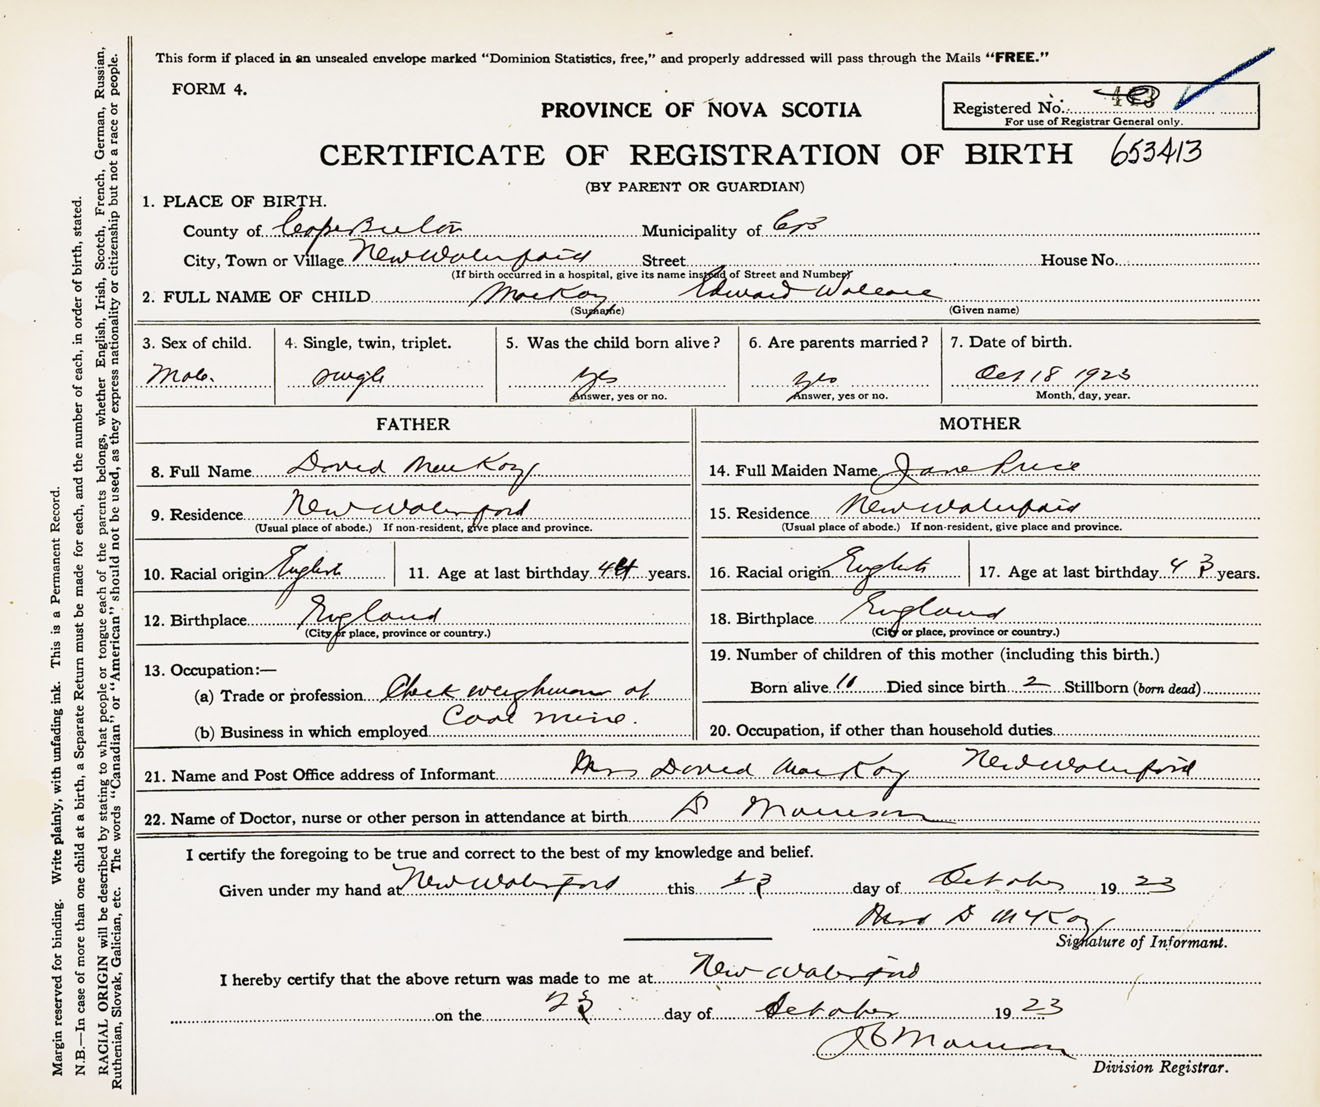 This form if placed in an unsealed envelope marked "Dominion Statistics, free," and properly addressed will pass through the Mails "FREE."
FORM 4.
PROVINCE OF NOVA SCOTIA
Registered No.
For use of Registrar General only.
CERTIFICATE OF REGISTRATION OF BIRTH 653413
(BY PARENT OR GUARDIAN)
1. PLACE OF BIRTH.
County of Cape Breton Municipality of CB
City, Town or Village New Waterford Street House No.
(If birth occurred in a hospital, give its name instead of Street and Number)
2. FULL NAME OF CHILD MacKay Edward Wallace
(Surname) (Given name)
3. Sex of child. 4. Single, twin, triplet. 5. Was the child born alive? 6. Are parents married? 7. Date of birth.
Male. single yes yes Oct 18 1923
Answer, yes or no. Answer, yes or no. Month, day, year.
FATHER MOTHER
8. Full Name David MacKay 14. Full Maiden Name Jane Price
9. Residence New Waterford 15. Residence New Waterford
(Usual place of abode.) If non-resident, give place and province. (Usual place of abode.) If non-resident, give place and province.
10. Racial origin English 11. Age at last birthday 44 years. 16. Racial origin English 17. Age at last birthday 43 years.
12. Birthplace England 18. Birthplace England
(City or place, province or country.) (City or place, province or country.)
13. Occupation:— 19. Number of children of this mother (including this birth.)
(a) Trade or profession Check weighman at Born alive 11 Died since birth 2 Stillborn (born dead)
(b) Business in which employed Coal mine. 20. Occupation, if other than household duties
21. Name and Post Office address of Informant Mrs David MacKay New Waterford
22. Name of Doctor, nurse or other person in attendance at birth Morrison
I certify the foregoing to be true and correct to the best of my knowledge and belief.
Given under my hand at New Waterford this 23 day of October 1923
Mrs D McKay
Signature of Informant.
I hereby certify that the above return was made to me at New Waterford
on the 23 day of October 1923
Morrison
Division Registrar.
Margin reserved for binding. Write plainly, with unfading ink. This is a Permanent Record.
N.B.—In case of more than one child at a birth, a Separate Return must be made for each, and the number of each, in order of birth, stated.
RACIAL ORIGIN will be described by stating to what people or tongue each of the parents belongs, whether English, Irish, Scotch, French, German, Russian,
Ruthenian, Slovak, Galician, etc. The words "Canadian" or "American" should not be used, as they express nationality or citizenship but not a race or people.